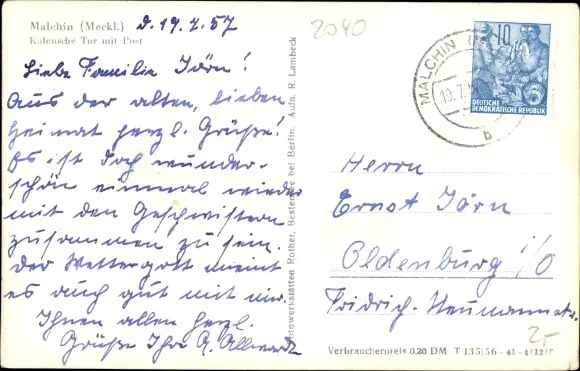 Malchin (Meckl.)
Kalensche Tor mit Post
d. 19.7.57
2040
Liebe Familie Jörn!
Aus der alten, lieben
Heimat herzl. Grüße!
Es ist doch wunder-
schön einmal wieder
mit den Geschwistern
zusammen zu sein.
Der Wettergott meint
es auch gut mit mir.
Ihnen allen herzl.
Grüße Ihr A. Allwardt
Rother, Bestensee bei Berlin, Aufn. R. Lambeck
MALCHIN
b
10
DEUTSCHE
DEMOKRATISCHE REPUBLIK
Herrn
Ernst Jörn
Oldenburg i/O
Fridrich. Neumannstr.
25
Verbraucherpreis 0.20 DM T 135/56 - 41 -